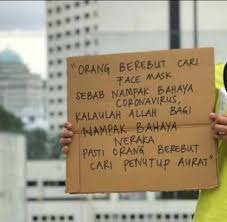 "ORANG BEREBUT CARI
FACE MASK
SEBAB NAMPAK BAHAYA
CORONAVIRUS,
KALAULAH ALLAH BAGI
NAMPAK BAHAYA
NERAKA
PASTI ORANG BEREBUT
CARI PENUTUP AURAT"